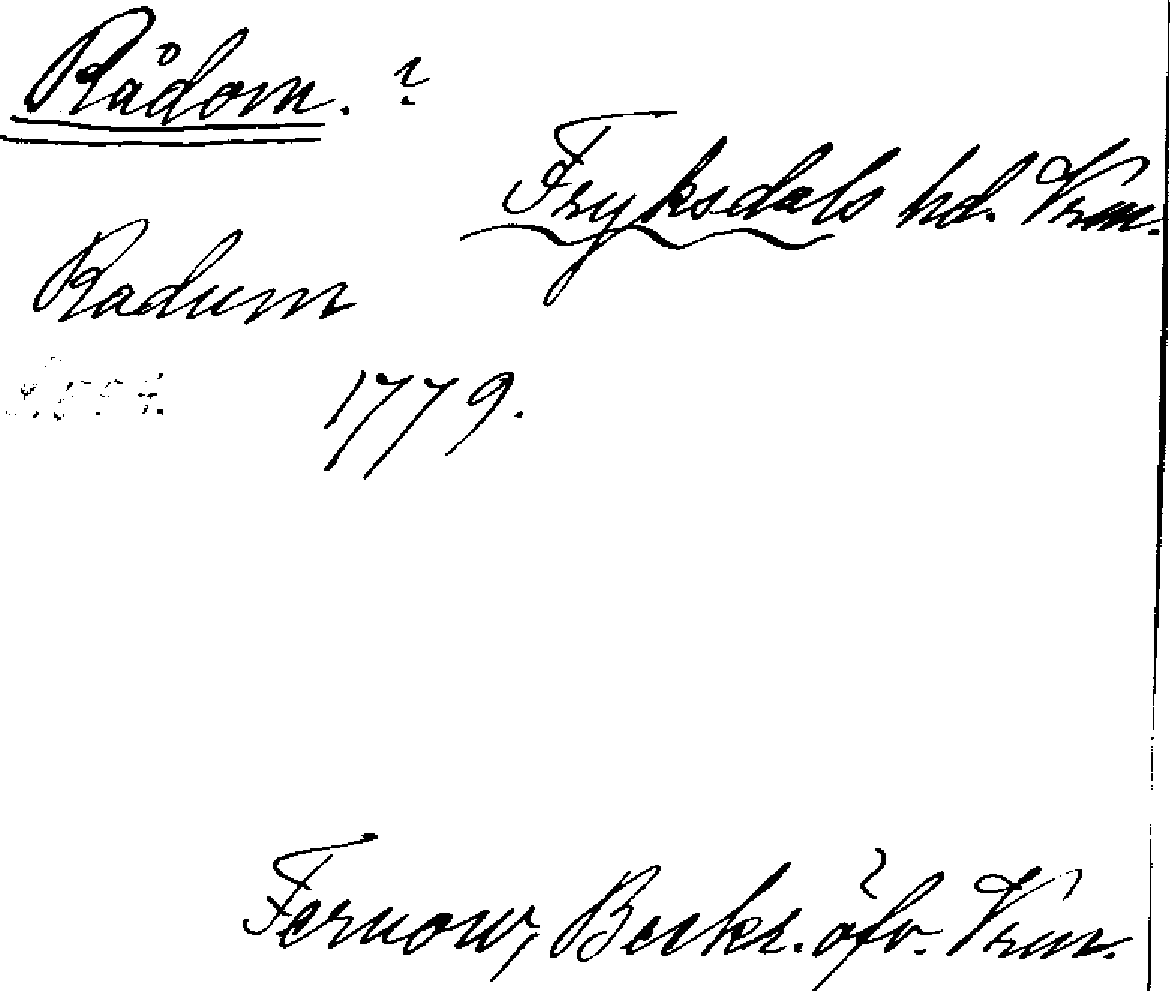 Rådom. ?
Fryksdals hd. Vrm.
Radum
1779.
Fernow, Beskr. öfv. Vrm.